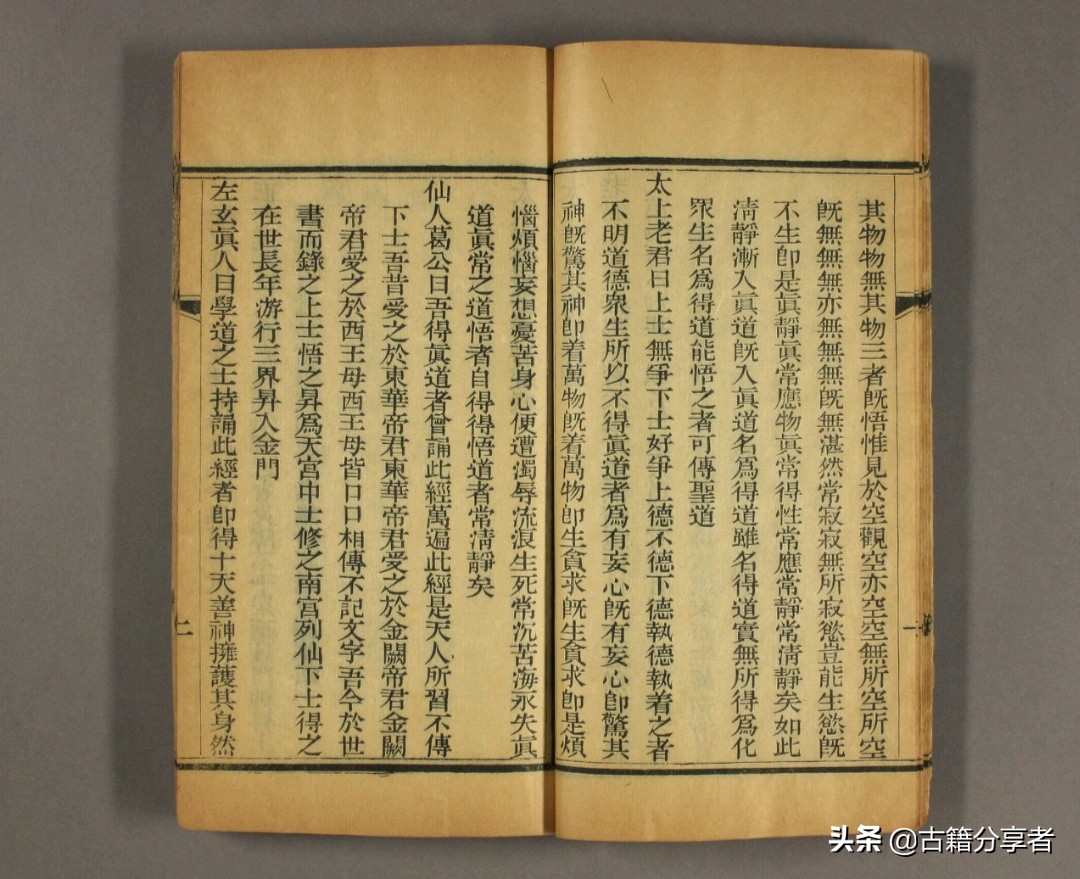 其物物無其物三者既悟惟見於空觀空亦空空無所空所空
既無無無亦無無無既無湛然常寂寂無所寂慾豈能生慾既
不生卽是眞靜眞常應物眞常得性常應常靜常清靜矣如此
清靜漸入眞道既入眞道名爲得道雖名得道實無所得爲化
衆生名爲得道能悟之者可傳聖道
太上老君曰上士無爭下士好爭上德不德下德執德執着之者
不明道德衆生所以不得眞道者爲有妄心既有妄心卽驚其
神既驚其神卽着萬物既着萬物卽生貪求既生貪求卽是煩
一
惱煩惱妄想憂苦身心便遭濁辱流浪生死常沉苦海永失眞
道眞常之道悟者自得得悟道者常清靜矣
仙人葛公曰吾得眞道者曾誦此經萬遍此經是天人所習不傳
下士吾昔受之於東華帝君東華帝君受之於金闕帝君金闕
帝君受之於西王母西王母皆口口相傳不記文字吾今於世
書而錄之上士悟之昇爲天宮中士修之南宮列仙下士得之
在世長年游行三界昇入金門
左玄眞人曰學道之士持誦此經者卽得十天善神擁護其身然
二
头条 @古籍分享者